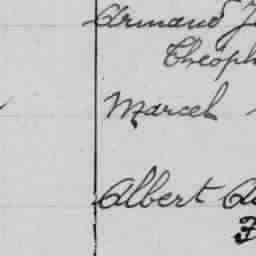 Armand J
Théoph
Marcel
Albert A
F